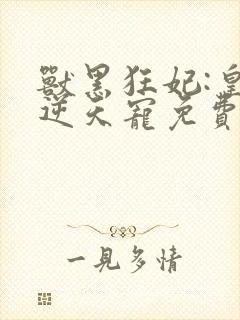 獸黑狂妃:皇
逆天寵免費
一見多情